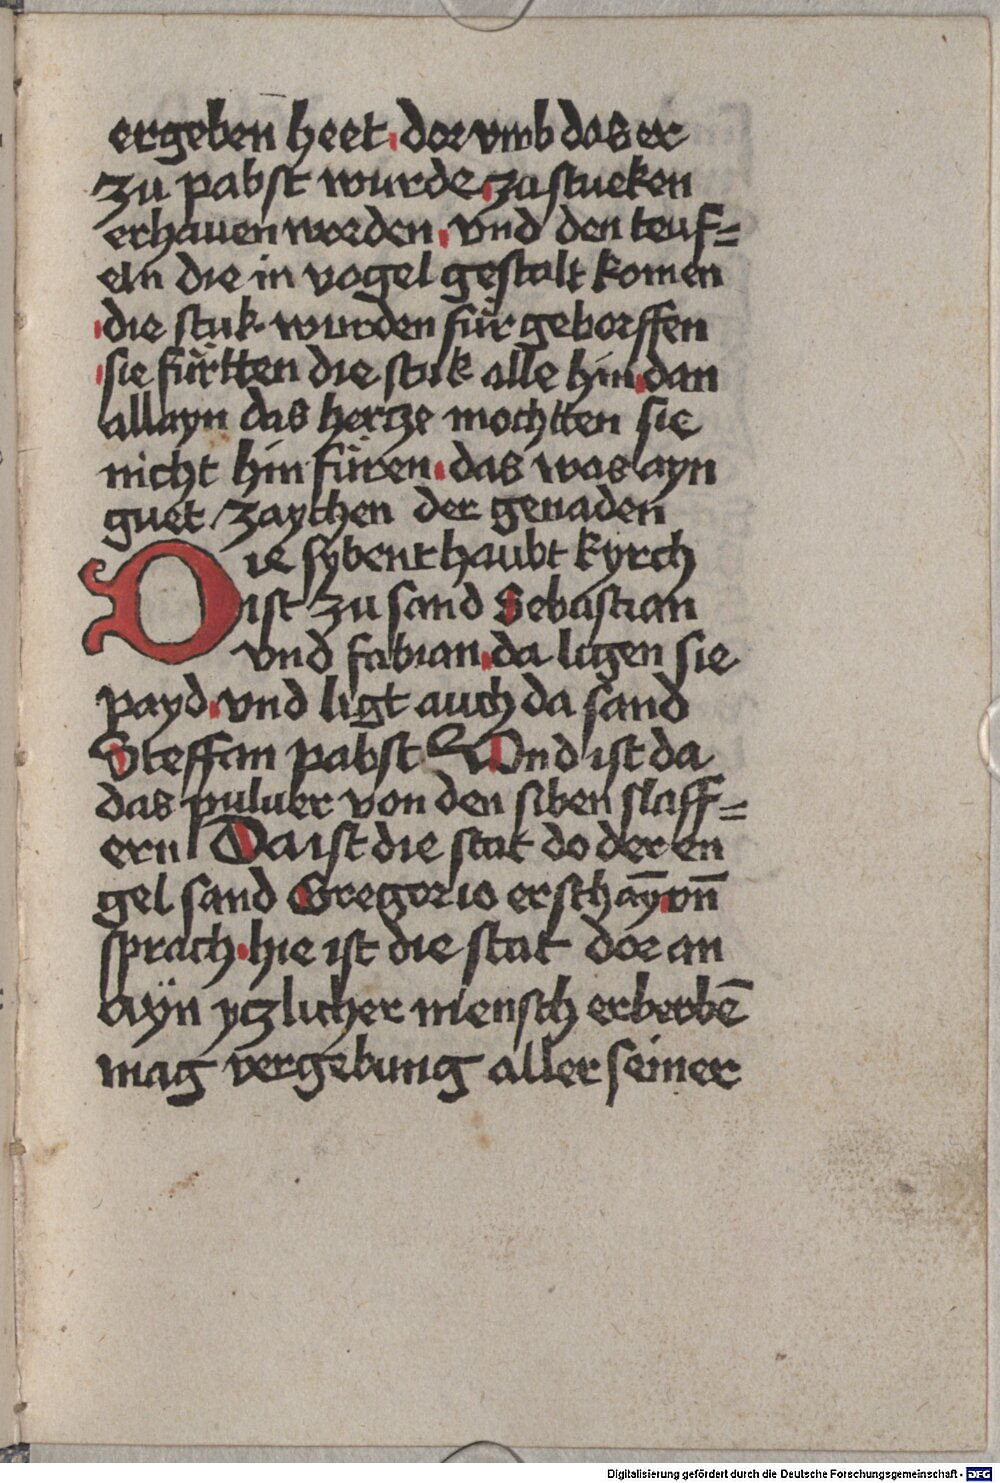 ergeben heet dor vmb das er
zu pabst wurde zastucken
erhauen worden vnd den teuf=
eln die in vogel gestalt komen
die stuk wurden für geborffen
sie fürtten die stuk alle hin dan
allayn das hercze mochtten sie
nicht hin füren das was ayn
guet zaychen der genaden
Die sybent haubt kyrch
ist zu sand Sebastian
vnd fabian da ligen sie
payd vnd ligt auch da sand
Steffan pabst Vnd ist da
das puluer von den siben slaff=
ern Da ist die stat do der en
gel sand Gregorio erschaȳ vn̄
sprach hie ist die stat dor an
aÿn yczlicher mensch erberbē
mag vergebung aller seiner
Digitalisierung gefördert durch die Deutsche Forschungsgemeinschaft - DFG